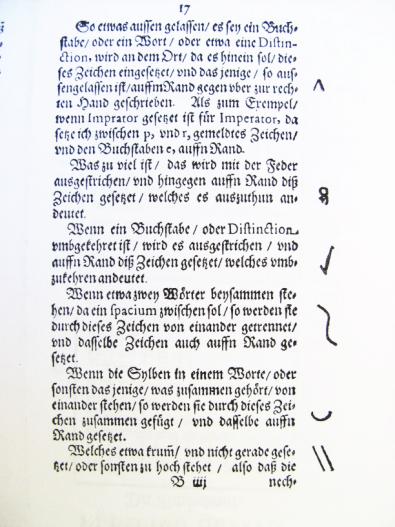 17
So etwas aussen gelassen / es sey ein Buch⸗
stabe / oder ein Wort / oder etwa eine Distin-
ction, wird an dem Ort / da es hinein sol / die⸗
ses Zeichen eingesetzet / vnd das jenige / so aus⸗
sengelassen ist / auffm Rand gegen vber zur rech⸗
ten Hand geschrieben. Als zum Exempel /
wenn Imprator gesetzet ist für Imperator, da
setze ich zwischen p, vnd r, gemeldtes Zeichen /
vnd den Buchstaben e, auffn Rand.
Was zu viel ist / das wird mit der Feder
ausgestrichen / vnd hingegen auffn Rand diß
Zeichen gesetzet / welches es auszuthun an⸗
deutet.
Wenn ein Buchstabe / oder Distinction
vmbgekehret ist / wird es ausgestrichen / vnd
auffn Rand diß Zeichen gesetzet / welches vmb⸗
zukehren andeutet.
Wenn etwa zwey Wörter beysammen ste⸗
hen / da ein spacium zwischen sol / so werden sie
durch dieses Zeichen von einander getrennet /
vnd dasselbe Zeichen auch auffn Rand ge⸗
setzet.
Wenn die Sylben in einem Worte / oder
sonsten das jenige / was zusammen gehört / von
einander stehen / so werden sie durch dieses Zei⸗
chen zusammen gefügt / vnd dasselbe auffn
Rand gesetzet.
Welches etwa krum̃ / vnd nicht gerade gese⸗
tzet / oder sonsten zu hoch stehet / also daß die
B iiij nech⸗